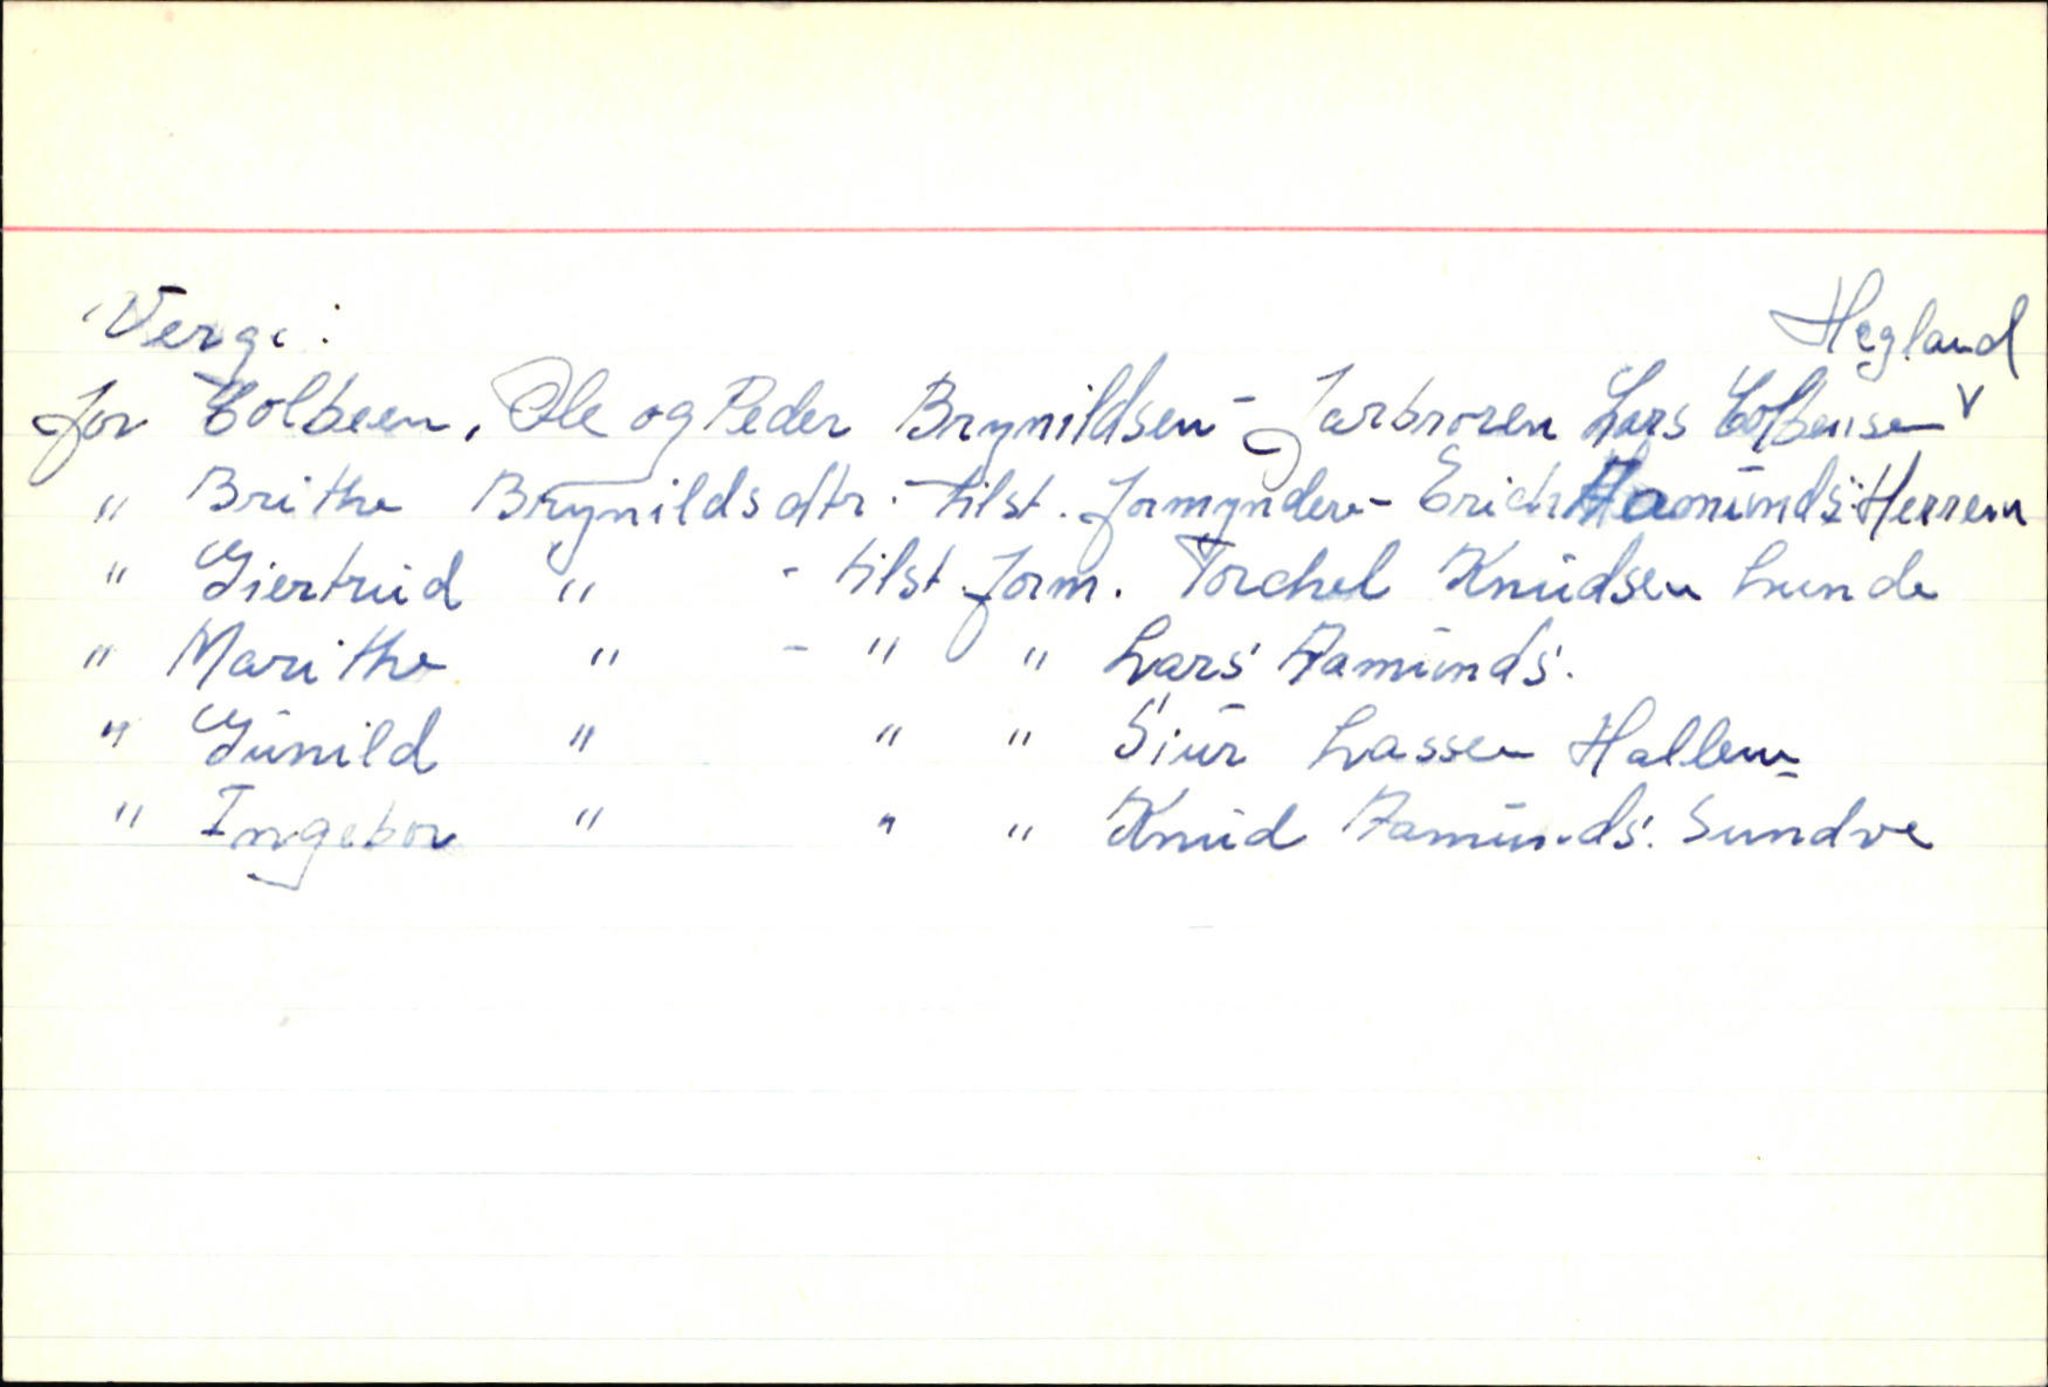 Verge:
Hegland
for Colbeen, Ole og Peder Brynildsen - Farbroren Lars Colbensen v
" Brithe Brynildsdtr. - tilst. formynder - Erich Aamunds: Herrem
" Giertrud " - tilst. form. Torchel Knudsen Lunde
" Marithe " - " " Lars Aamunds.
" Gunild " " " Siur Lassen Hallem
" Ingebor " " " Knud Aamunds. Sundve